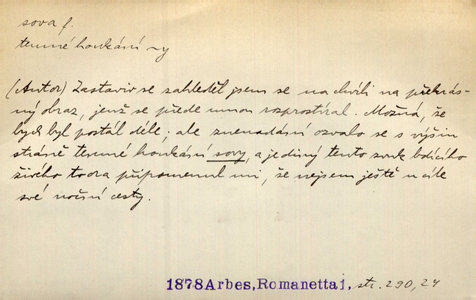 sova f.
temné houkání ~y
(Autor) Zastaviv se zahleděl jsem se na chvíli na překrás-
ný obraz, jenž se přede mnou rozprostíral. Možná, že
bych byl postál déle; ale znenadání ozvalo se s výšin
stráně temné houkání sovy, a jediný tento zvuk bdícího
živého tvora připomenul mi, že nejsem ještě u cíle
své noční cesty.
1878 Arbes, Romanetta i, str. 290, 24